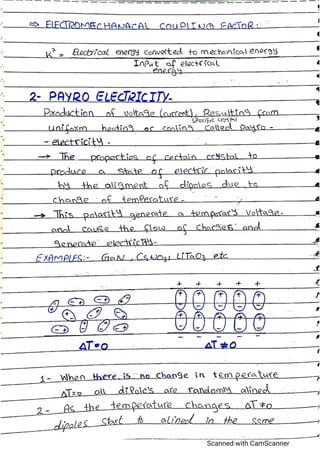 ⇒ ELECTROMECHANACAL COUPLING FACTOR:
K² = Electrical energy converted to mechanical energy
InPut of electrical
energy
2- PAYRO ELECTRICITY-
Production of voltage (current), Resulting from
specific crystal
uniform heating or cooling called Payro-
-electricity.
→ The properties of certain crystal to
produce a state of electric polarity
by the aligment of dipoles due to
change of temperature.
→ This polarity generate a temporary voltage.
and cause the flow of charges and
generate electricity.
EXAMPLES:- GaN, CsNO3, LiTaO3 etc
+ + + + +
ΔT=0 ΔT≠0
1- When there is no change in temperature
ΔT=0 all diPole's are randomly alined
2- As the temperature changes ΔT≠0
dipoles start to alined in the same
Scanned with CamScanner